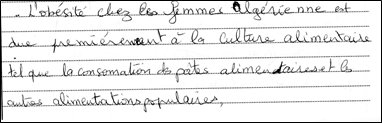 . L'obésité chez les femmes Algérienne est
due premièrement à la culture alimentaire
tel que la consomation des pâtes alimentaires et les
autres alimentations populaires,